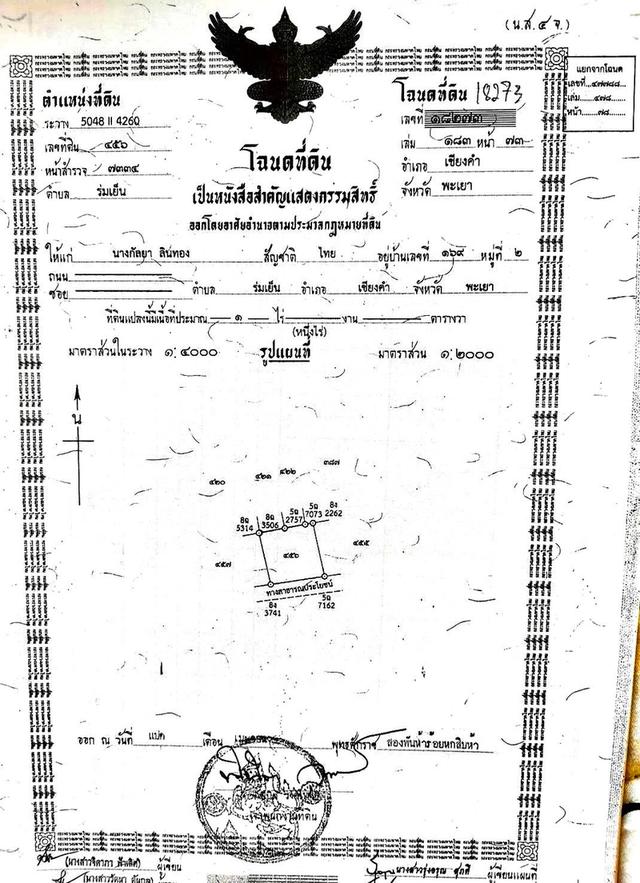 (น.ส. ๔ จ.)
ตำแหน่งที่ดิน
ระวาง 5048 II 4260
เลขที่ดิน ๔๕๖
หน้าสำรวจ ๗๓๓๔
ตำบล ร่มเย็น
โฉนดที่ดิน
เป็นหนังสือสำคัญแสดงกรรมสิทธิ์
ออกโดยอาศัยอำนาจตามประมวลกฎหมายที่ดิน
โฉนดที่ดิน 18273
เลขที่ ๑๘๒๗๓
เล่ม ๑๘๓ หน้า ๗๓
อำเภอ เชียงคำ
จังหวัด พะเยา
แยกจากโฉนด
เลขที่
เล่ม ๔๗๘
หน้า ๗๘
ให้แก่ นางกัลยา ลินทอง สัญชาติ ไทย อยู่บ้านเลขที่ ๑๖๙ หมู่ที่ ๒
ถนน
ซอย ตำบล ร่มเย็น อำเภอ เชียงคำ จังหวัด พะเยา
ที่ดินแปลงนี้มีเนื้อที่ประมาณ ๑ ไร่ งาน ตารางวา
(หนึ่งไร่)
มาตราส่วนในระวาง ๑:๔๐๐๐ รูปแผนที่ มาตราส่วน ๑:๒๐๐๐
น
๔๒๐ ๔๒๑ ๔๒๒ ๓๘๗
8ฉ 5314 8ฉ 3506 5ฉ 2757 5ฉ 7073 8ง 2262
๔๕๗ ๔๕๖ ๔๕๕
ทางสาธารณประโยชน์
8ง 3741 5ฉ 7162
ออก ณ วันที่ แปด เดือน เมษายน พุทธศักราช สองพันห้าร้อยหกสิบห้า
เจ้าพนักงานที่ดิน
ผู้เขียน
ผู้เขียนแผนที่